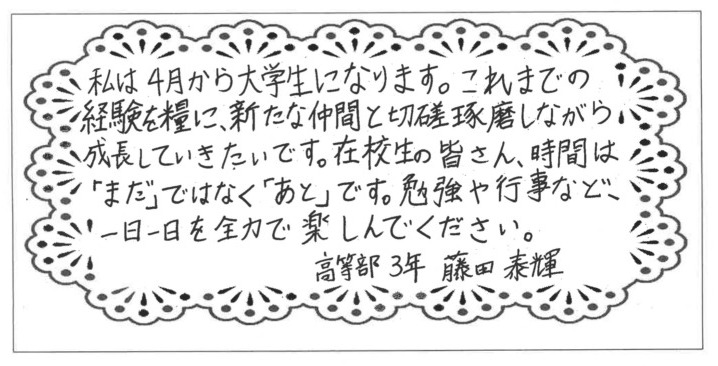 私は4月から大学生になります。これまでの
経験を糧に、新たな仲間と切磋琢磨しながら
成長していきたいです。在校生の皆さん、時間は
「まだ」ではなく「あと」です。勉強や行事など、
一日一日を全力で楽しんでください。
高等部 3年 藤田 泰輝